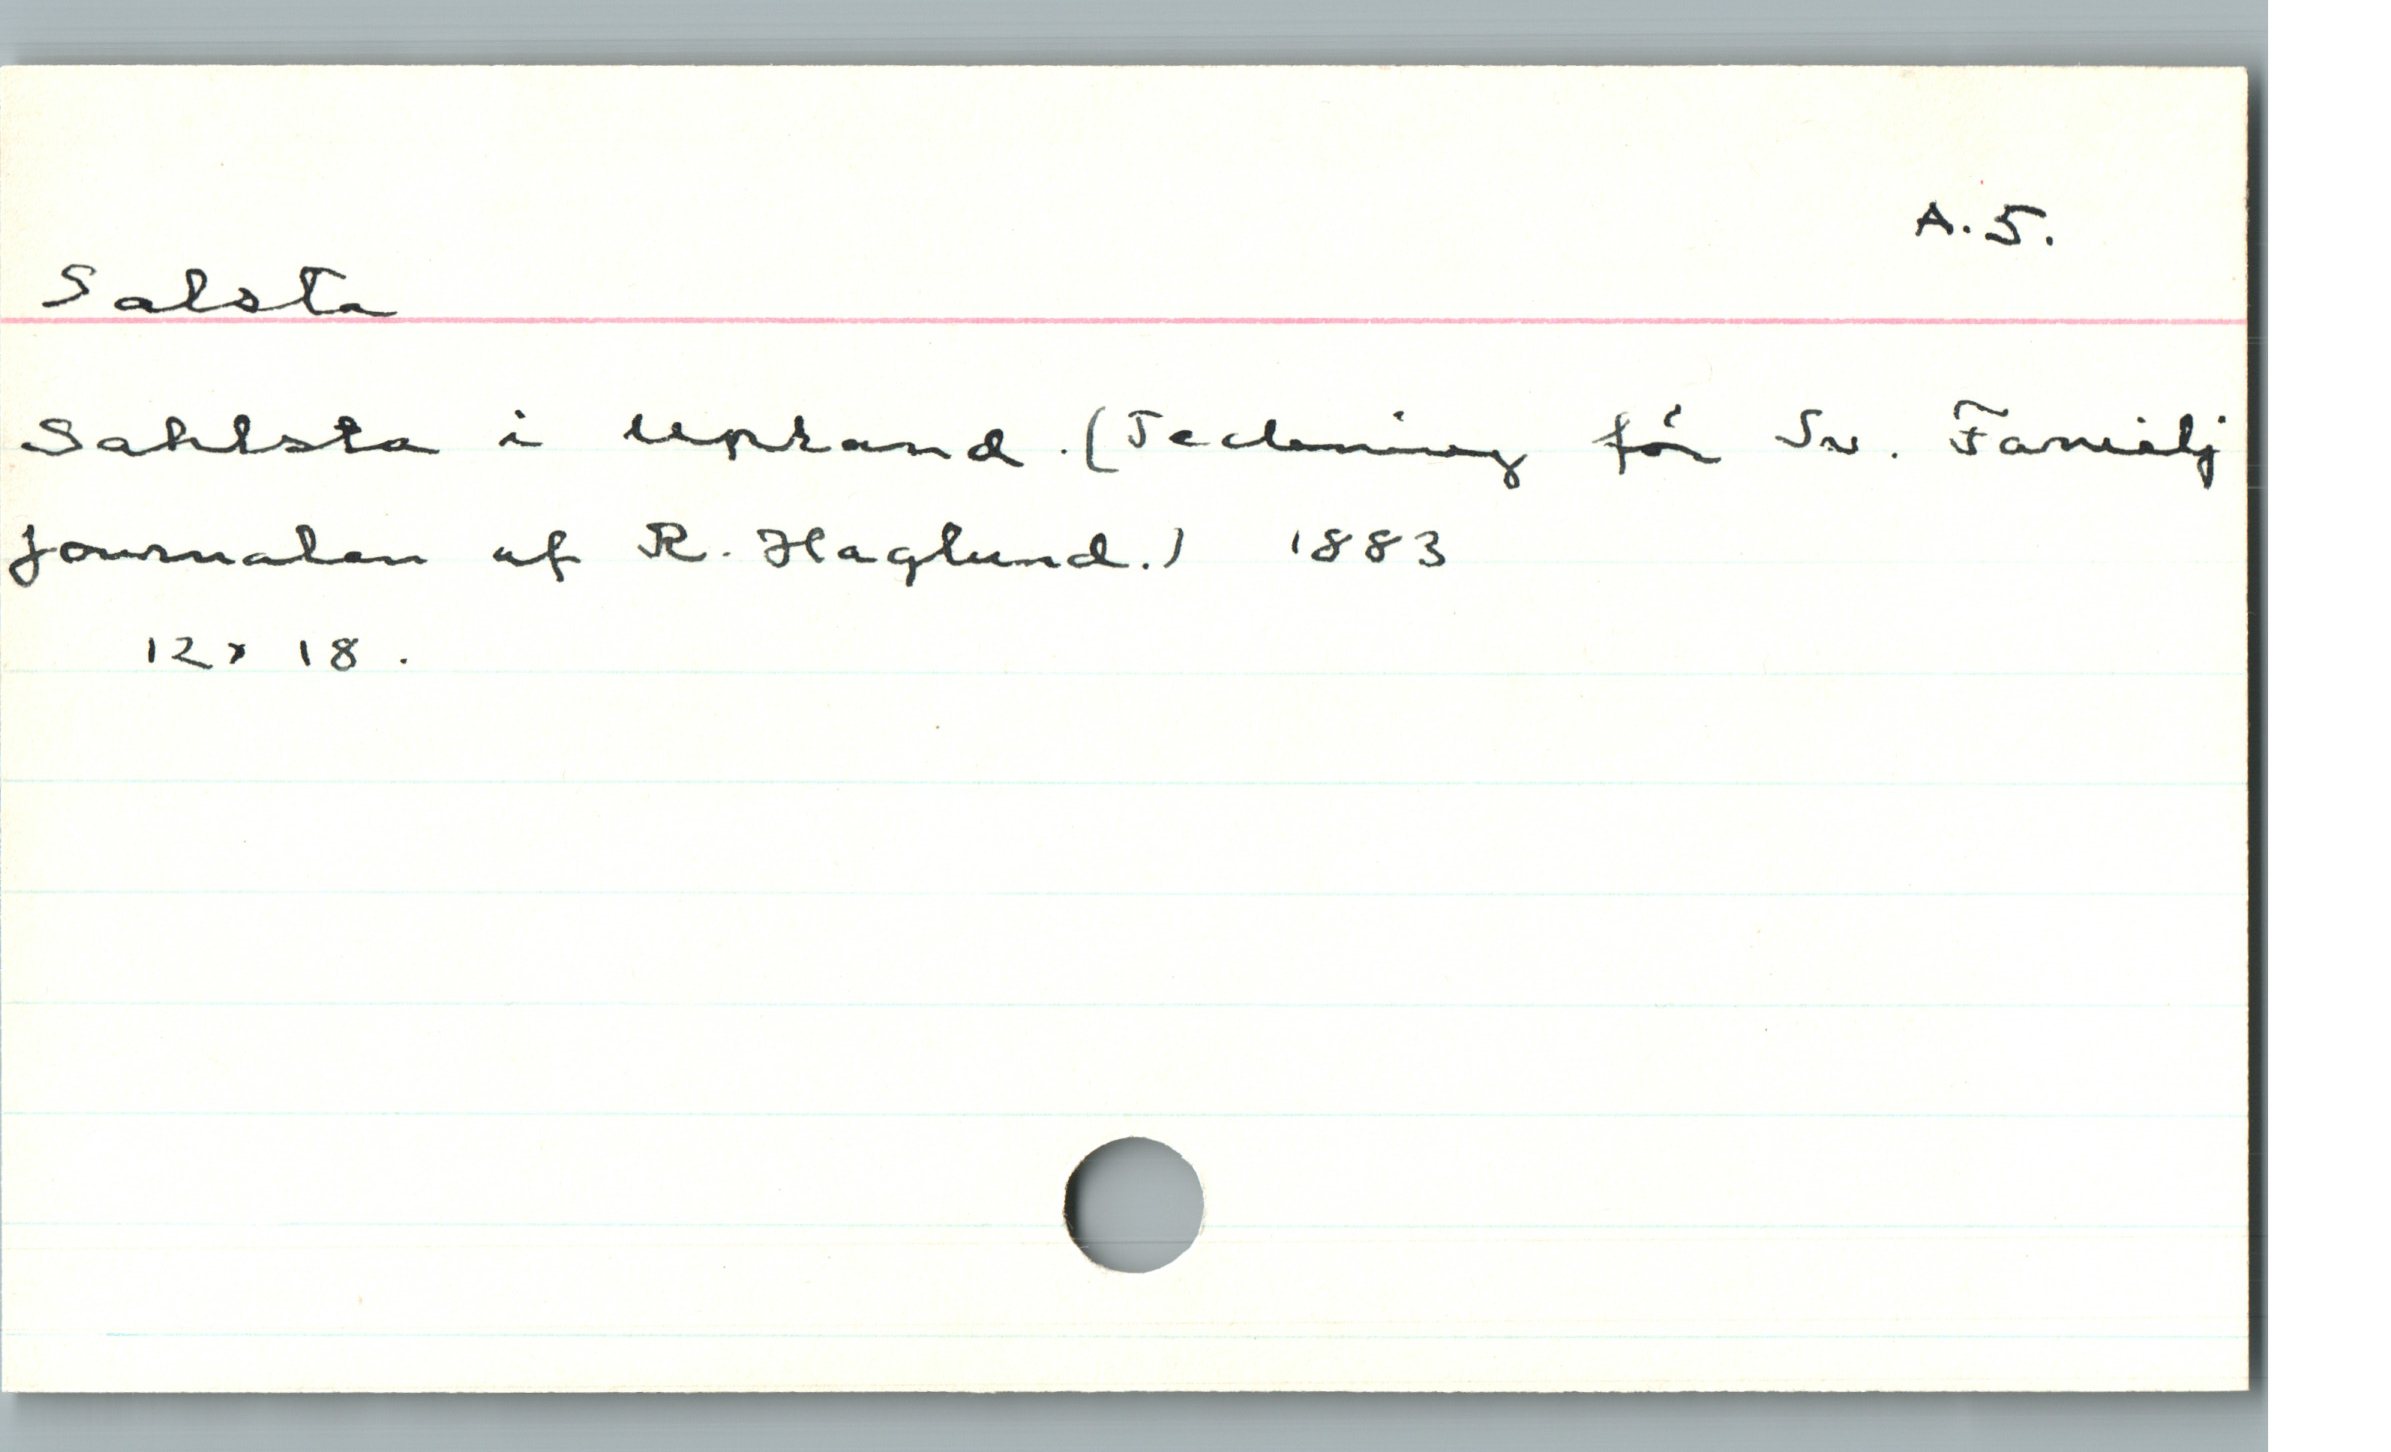 A.5.
Salsta
Sahlsta i Upland. (Teckning för Sv. Familj
journalen af R. Haglund.) 1883
12x 18.